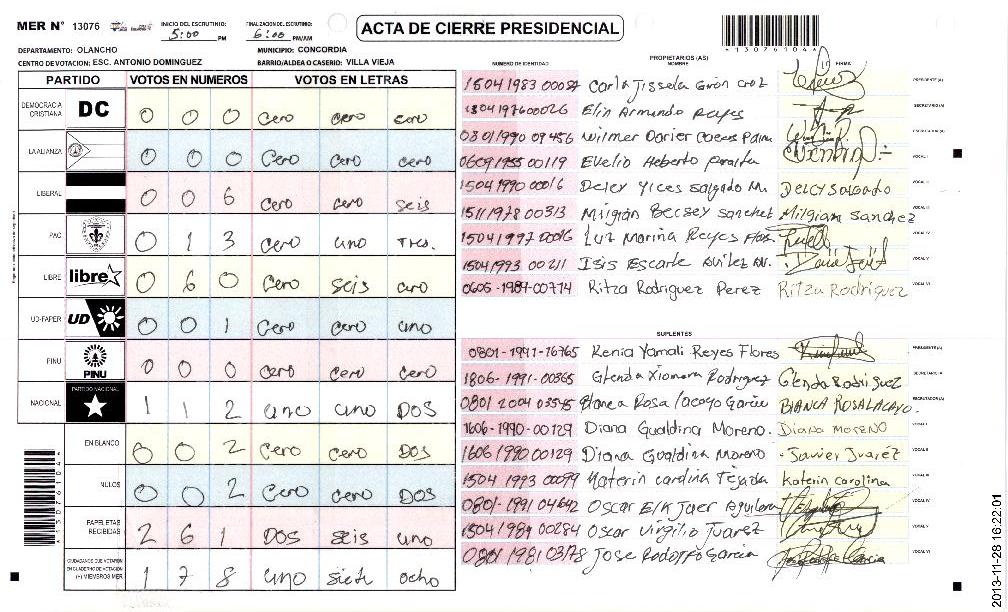 MER N° 13076
INICIO DEL ESCRUTINIO: 5:00 PM
FINALIZACION DEL ESCRUTINIO: 6:00 PM/AM
ACTA DE CIERRE PRESIDENCIAL
DEPARTAMENTO: OLANCHO
MUNICIPIO: CONCORDIA
CENTRO DE VOTACION: ESC. ANTONIO DOMINGUEZ
BARRIO/ALDEA O CASERIO: VILLA VIEJA
PARTIDO VOTOS EN NUMEROS VOTOS EN LETRAS
DEMOCRACIA CRISTIANA DC 0 0 0 cero cero cero
LA ALIANZA 0 0 0 Cero Cero cero
LIBERAL 0 0 6 cero cero seis
PAC 0 1 3 cero uno Tres.
LIBRE libre 0 6 0 Cero seis cero
UD-FAPER UD 0 0 1 Cero Cero uno
PINU PINU 0 0 0 cero cero cero
NACIONAL PARTIDO NACIONAL 1 1 2 uno uno DOS
EN BLANCO 0 0 2 Cero Cero DOS
NULOS 0 0 2 Cero cero DOS
PAPELETAS RECIBIDAS 2 6 1 DOS seis uno
CIUDADANOS QUE VOTARON EN CUADERNO DE VOTACION (+) MIEMBROS MER 1 7 8 uno siete ocho
*13076104*
NUMERO DE IDENTIDAD PROPIETARIOS (AS) FIRMA
Carla Jissela Girón Cruz PRESIDENTE(A)
1504197600026 Elin Armundo Reyes SECRETARIO(A)
0801/1990 09456 Wilmer Darier ESCRUTADOR(A)
0609 1955 00119 Evelio Heberto Peralta VOCAL I
1504 1990 00016 Delcy Salgado M. DELCY SALGADO VOCAL II
1511 1978 00313 Milgian Becsey Sanchez Milgiam Sanchez VOCAL III
1504 1997 00016 Luz Marina Reyes VOCAL IV
1504 1993 00211 Isis Escarle VOCAL V
0606-1984-00774 Ritza Rodriguez Perez Ritza Rodriguez VOCAL VI
SUPLENTES
0801-1991-16765 Kenia Yamali Reyes Flores PRESIDENTE(A)
1806-1991-00365 Glenda Xiomara Rodriguez Glenda Rodriguez SECRETARIO/A
0801 2004 03545 Blanca Rosa Lacayo Garcia BLANCA ROSA LACAYO. ESCRUTADOR(A)
1606-1990-00129 Diana Gualdina Moreno. Diana MORENO VOCAL I
1606 1990 00129 Diana Gualdina Moreno - Javier Juarez VOCAL II
1504 1993 00099 Katerin cardina Tejada katerin carolina VOCAL III
0801-1991 04642 Oscar Aguilera VOCAL IV
1504 1989 00284 Oscar Virgilio Juarez VOCAL V
0801 1981 03178 Jose Rodolfo Garcia VOCAL VI
*13076104*
2013-11-28 16:22:01